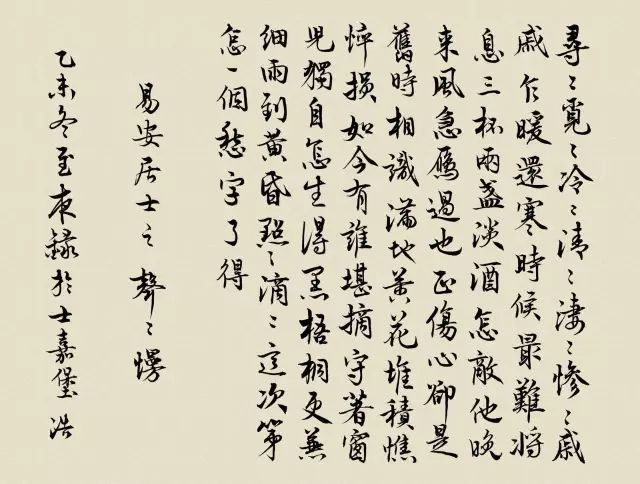 尋〻覓〻冷〻清〻淒〻慘〻戚
戚乍暖還寒時候最難將
息三杯兩盞淡酒怎敵他晚
来風急雁過也正傷心卻是
舊時相識滿地黄花堆積憔
悴損如今有誰堪摘守著窗
兒獨自怎生得黑梧桐更兼
細雨到黄昏點〻滴〻這次第
怎一個愁字了得
易安居士之聲〻慢
乙未冬至夜録於士嘉堡浩